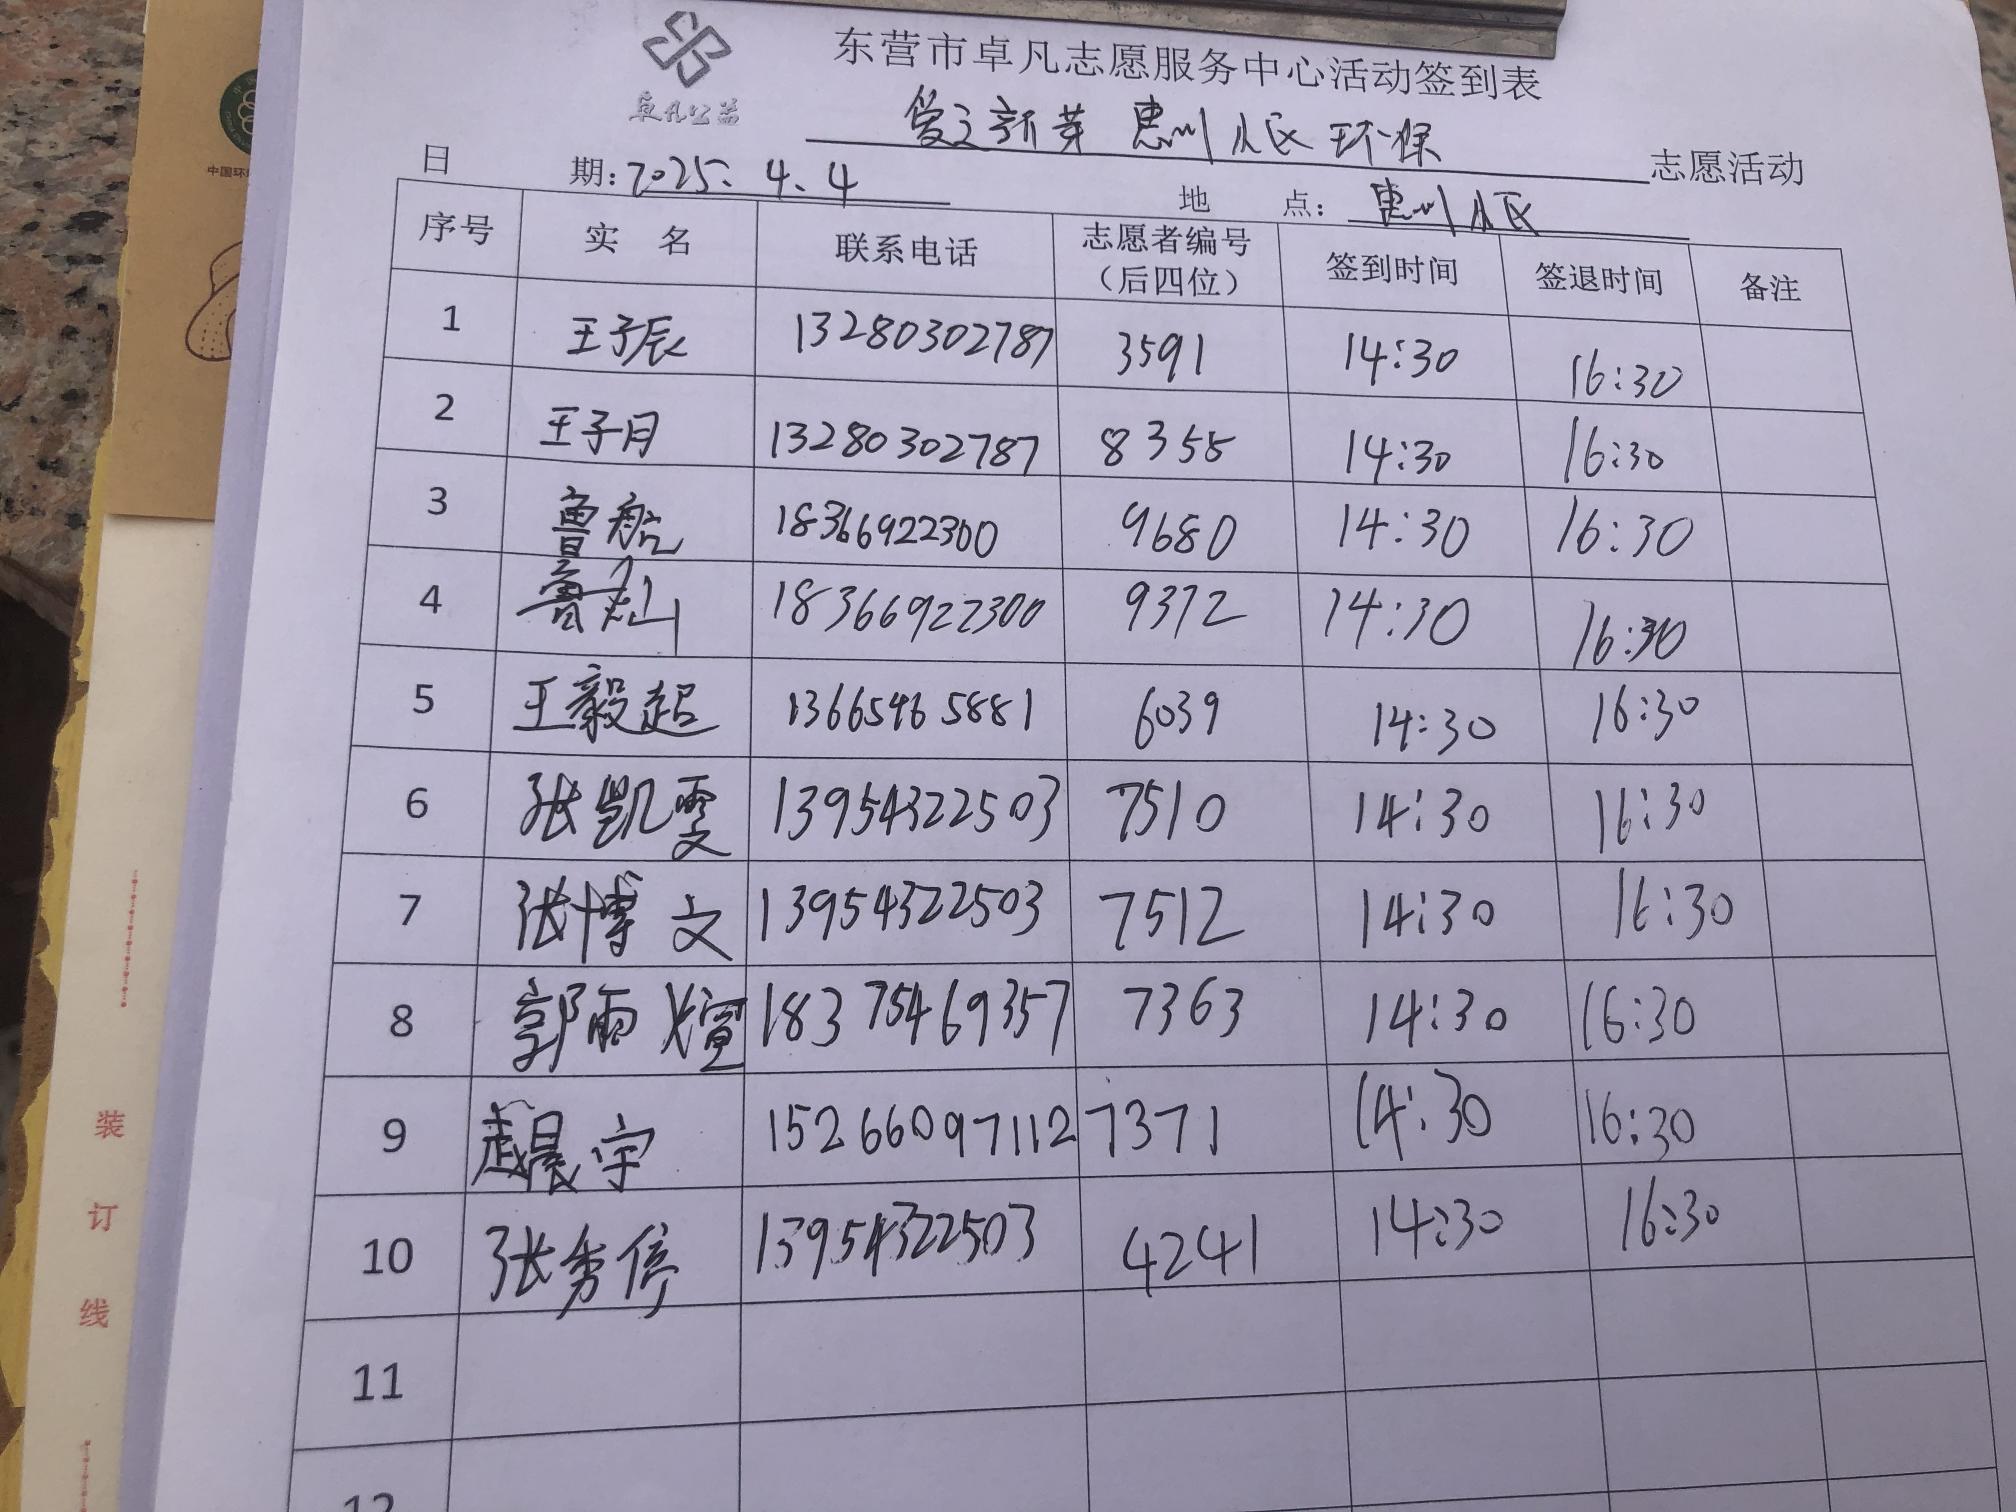 东营市卓凡志愿服务中心活动签到表
卓凡公益
爱之新芽 惠州小区 环保 志愿活动
日 期：2025.4.4 地 点：惠州小区
序号 实 名 联系电话 志愿者编号（后四位） 签到时间 签退时间 备注
1 王子辰 13280302787 3591 14:30 16:30
2 王子月 13280302787 8355 14:30 16:30
3 鲁航 18366922300 9680 14:30 16:30
4 鲁灿 18366922300 9372 14:30 16:30
5 王毅起 13665465881 6039 14:30 16:30
6 张凯雯 13954322503 7510 14:30 16:30
7 张博文 13954322503 7512 14:30 16:30
8 郭雨煊 18375469357 7363 14:30 16:30
9 赵晨宇 15266097112 7371 14:30 16:30
10 张秀停 13954322503 4241 14:30 16:30
11
12
中国环
装
订
线